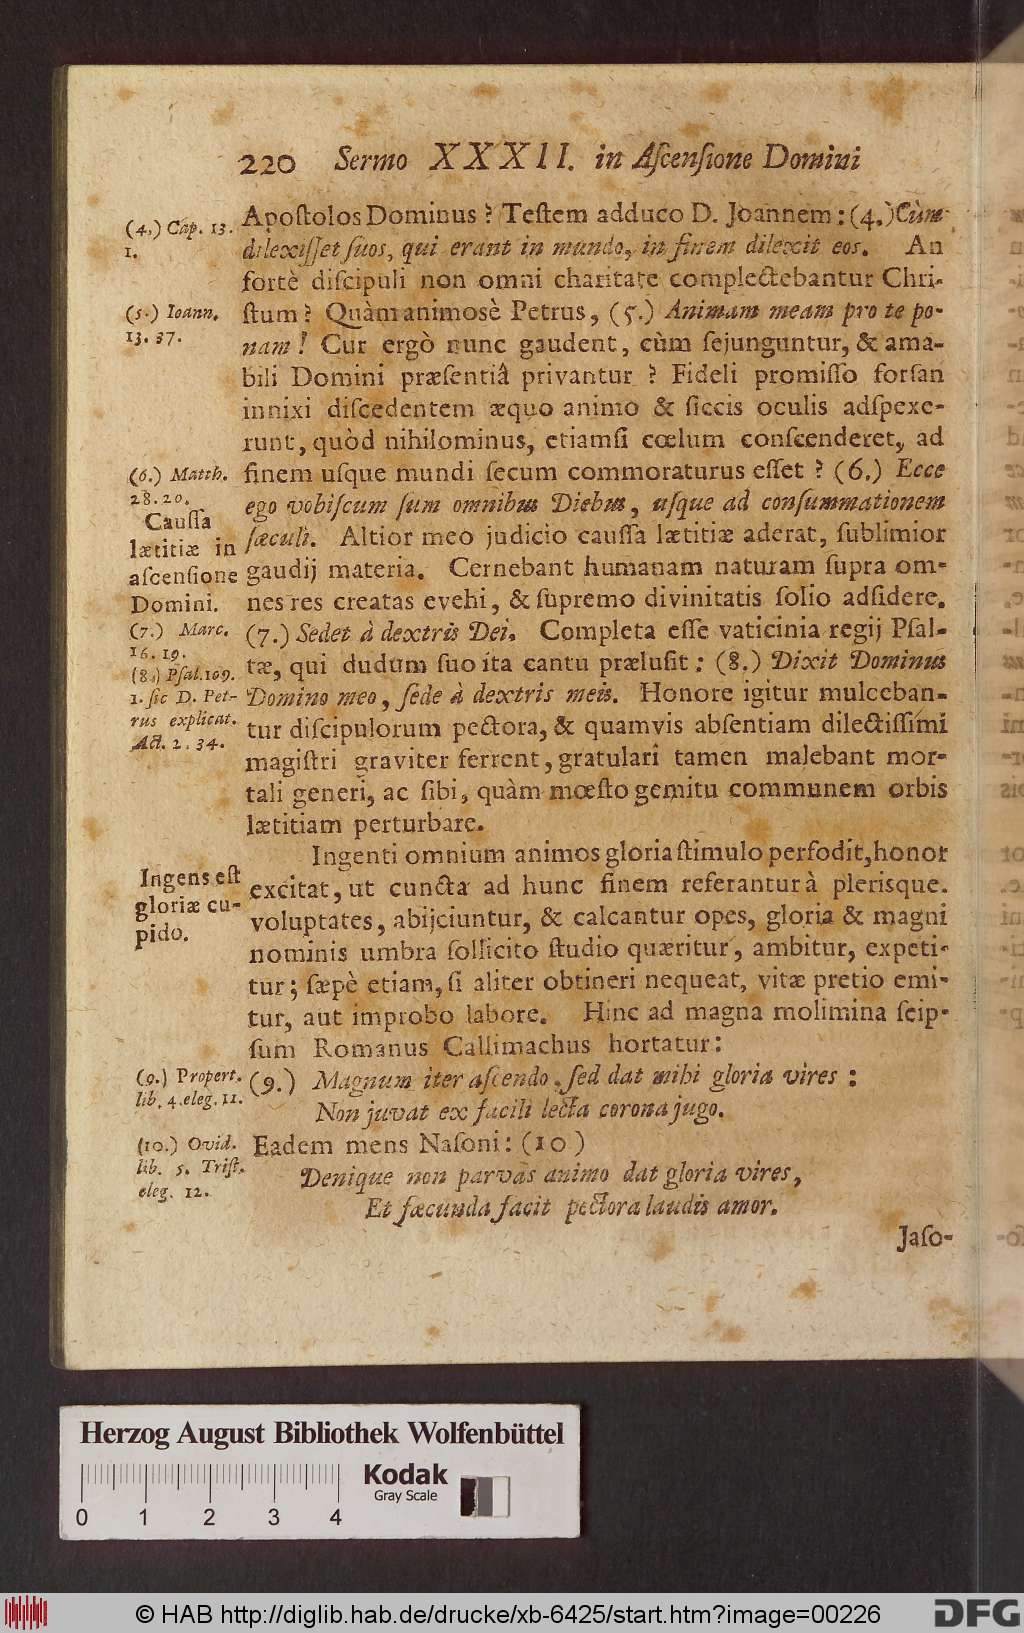 220 Sermo XXXII. in Aſcenſione Domini
Apoſtolos Dominus? Teſtem adduco D. Joannem: (4.) Cùm
dilexiſſet ſuos, qui erant in mundo, in finem dilexit eos. An
fortè diſcipuli non omni charitate complectebantur Chri-
ſtum? Quàm animosè Petrus, (5.) Animam meam pro te po-
nam! Cur ergò nunc gaudent, cùm ſejunguntur, & ama-
bili Domini præſentiâ privantur? Fideli promiſſo forſan
innixi diſcedentem æquo animo & ſiccis oculis adſpexe-
runt, quòd nihilominus, etiamſi cœlum conſcenderet, ad
finem uſque mundi ſecum commoraturus eſſet? (6.) Ecce
ego vobiſcum ſum omnibus Diebus, uſque ad conſummationem
ſæculi. Altior meo judicio cauſſa lætitiæ aderat, ſublimior
gaudij materia. Cernebant humanam naturam ſupra om-
nes res creatas evehi, & ſupremo divinitatis ſolio adſidere.
(7.) Sedet à dextris Dei. Completa eſſe vaticinia regij Pſal-
tæ, qui dudum ſuo ita cantu præluſit: (8.) Dixit Dominus
Domino meo, ſede à dextris meis. Honore igitur mulceban-
tur diſcipulorum pectora, & quamvis abſentiam dilectiſſimi
magiſtri graviter ferrent, gratulari tamen malebant mor-
tali generi, ac ſibi, quàm mœſto gemitu communem orbis
lætitiam perturbare.
Ingenti omnium animos gloria ſtimulo perfodit, honor
excitat, ut cuncta ad hunc finem referantur à plerisque.
voluptates, abijciuntur, & calcantur opes, gloria & magni
nominis umbra ſollicito ſtudio quæritur, ambitur, expeti-
tur; ſæpè etiam, ſi aliter obtineri nequeat, vitæ pretio emi-
tur, aut improbo labore. Hinc ad magna molimina ſeip-
ſum Romanus Callimachus hortatur:
(9.) Magnum iter aſcendo, ſed dat mihi gloria vires:
Non juvat ex facili lecta corona jugo.
Eadem mens Naſoni: (10)
Denique non parvas animo dat gloria vires,
Et fæcunda facit pectora laudis amor.
Jaſo-
(4.) Cap. 13.
1.
(5.) Ioann.
13. 37.
(6.) Matth.
28. 20.
Cauſſa
lætitiæ in
aſcenſione
Domini.
(7.) Marc.
16. 19.
(8.) Pſal. 109.
1. ſic D. Pet-
rus explicat.
Act. 2. 34.
Ingens eſt
gloriæ cu-
pido.
(9.) Propert.
lib. 4. eleg. 11.
(10.) Ovid.
lib. 5. Triſt.
eleg. 12.
Herzog August Bibliothek Wolfenbüttel
Kodak
Gray Scale
0 1 2 3 4
© HAB http://diglib.hab.de/drucke/xb-6425/start.htm?image=00226
DFG